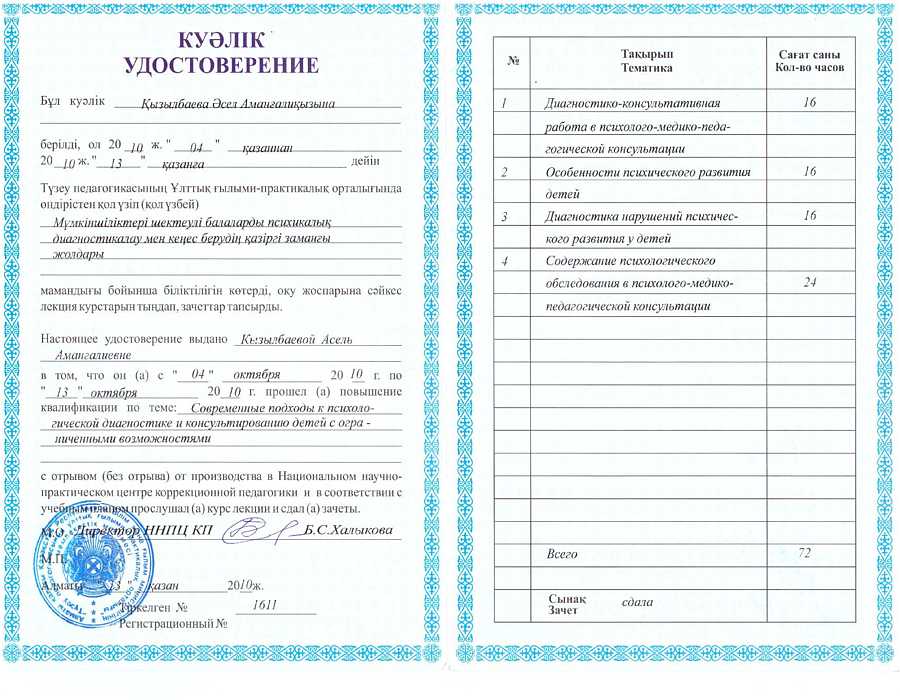 КУӘЛІК
УДОСТОВЕРЕНИЕ
Бұл куәлік Қызылбаева Әсел Аманғалиқызына
берілді, ол 20 10 ж. " 04 " қазаннан
20 10 ж. " 13 " қазанға дейін
Түзеу педагогикасының Ұлттық ғылыми-практикалық орталығында
өндірістен қол үзіп (қол үзбей)
Мүмкіншіліктері шектеулі балаларды психикалық
диагностикалау мен кеңес берудің қазіргі заманғы
жолдары
мамандығы бойынша біліктілігін көтерді, оқу жоспарына сәйкес
лекция курстарын тыңдап, зачеттар тапсырды.
Настоящее удостоверение выдано Кызылбаевой Асель
Амангалиевне
в том, что он (а) с " 04 " октября 20 10 г. по
" 13 " октября 20 10 г. прошел (а) повышение
квалификации по теме: Современные подходы к психоло-
гической диагностике и консультированию детей с огра -
ниченными возможностями
с отрывом (без отрыва) от производства в Национальном научно-
практическом центре коррекционной педагогики и в соответствии с
учебным планом прослушал (а) курс лекции и сдал (а) зачеты.
М.О. Директор ННПЦ КП Б.С.Халыкова
М.П.
Алматы " 13 " қазан 2010ж.
Тіркелген № 1611
Регистрационный №
№ Тақырып Сағат саны
Тематика Кол-во часов
1 Диагностико-консультативная 16
работа в психолого-медико-педа-
гогической консультации
2 Особенности психического развития 16
детей
3 Диагностика нарушений психичес- 16
кого развития у детей
4 Содержание психологического
обследования в психолого-медико- 24
педагогической консультации
Всего 72
Сынақ сдала
Зачет